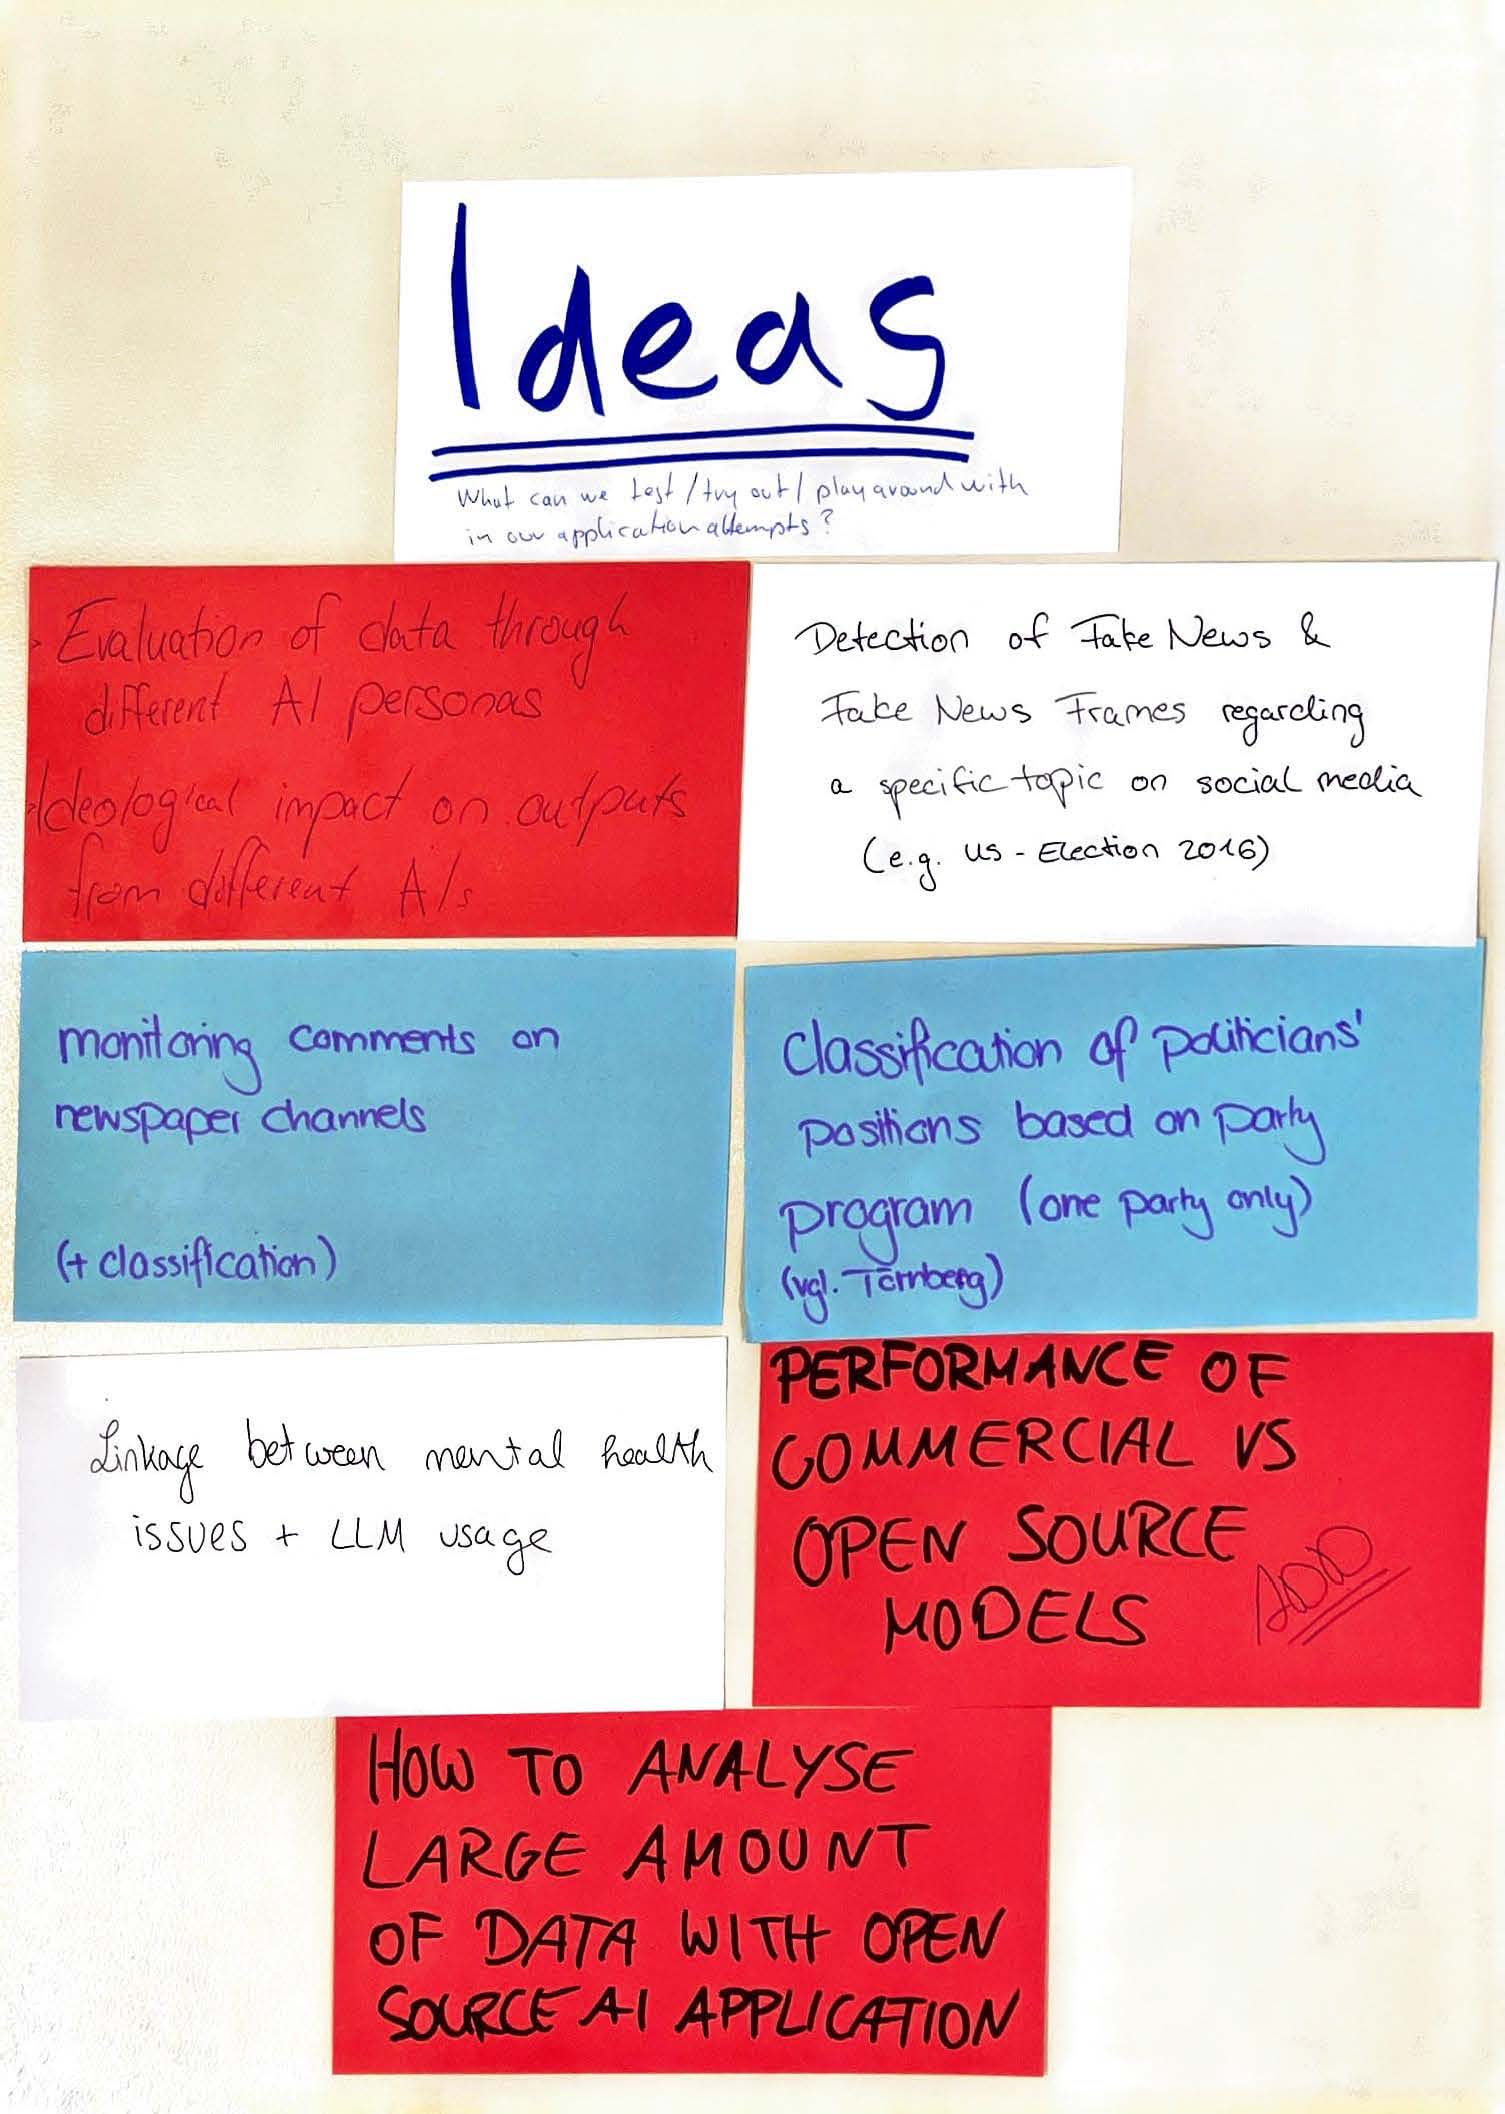 Ideas
What can we test / try out / play around with
in our application attempts?
> Evaluation of data through
different AI personas
> Ideological impact on outputs
from different AIs
Detection of Fake News &
Fake News Frames regarding
a specific topic on social media
(e.g. US-Election 2016)
monitoring comments on
newspaper channels
(+ classification)
Classification of politicians'
positions based on party
program (one party only)
(vgl. Törnberg)
Linkage between mental health
issues + LLM usage
PERFORMANCE OF
COMMERCIAL VS
OPEN SOURCE
MODELS
HOW TO ANALYSE
LARGE AMOUNT
OF DATA WITH OPEN
SOURCE AI APPLICATION